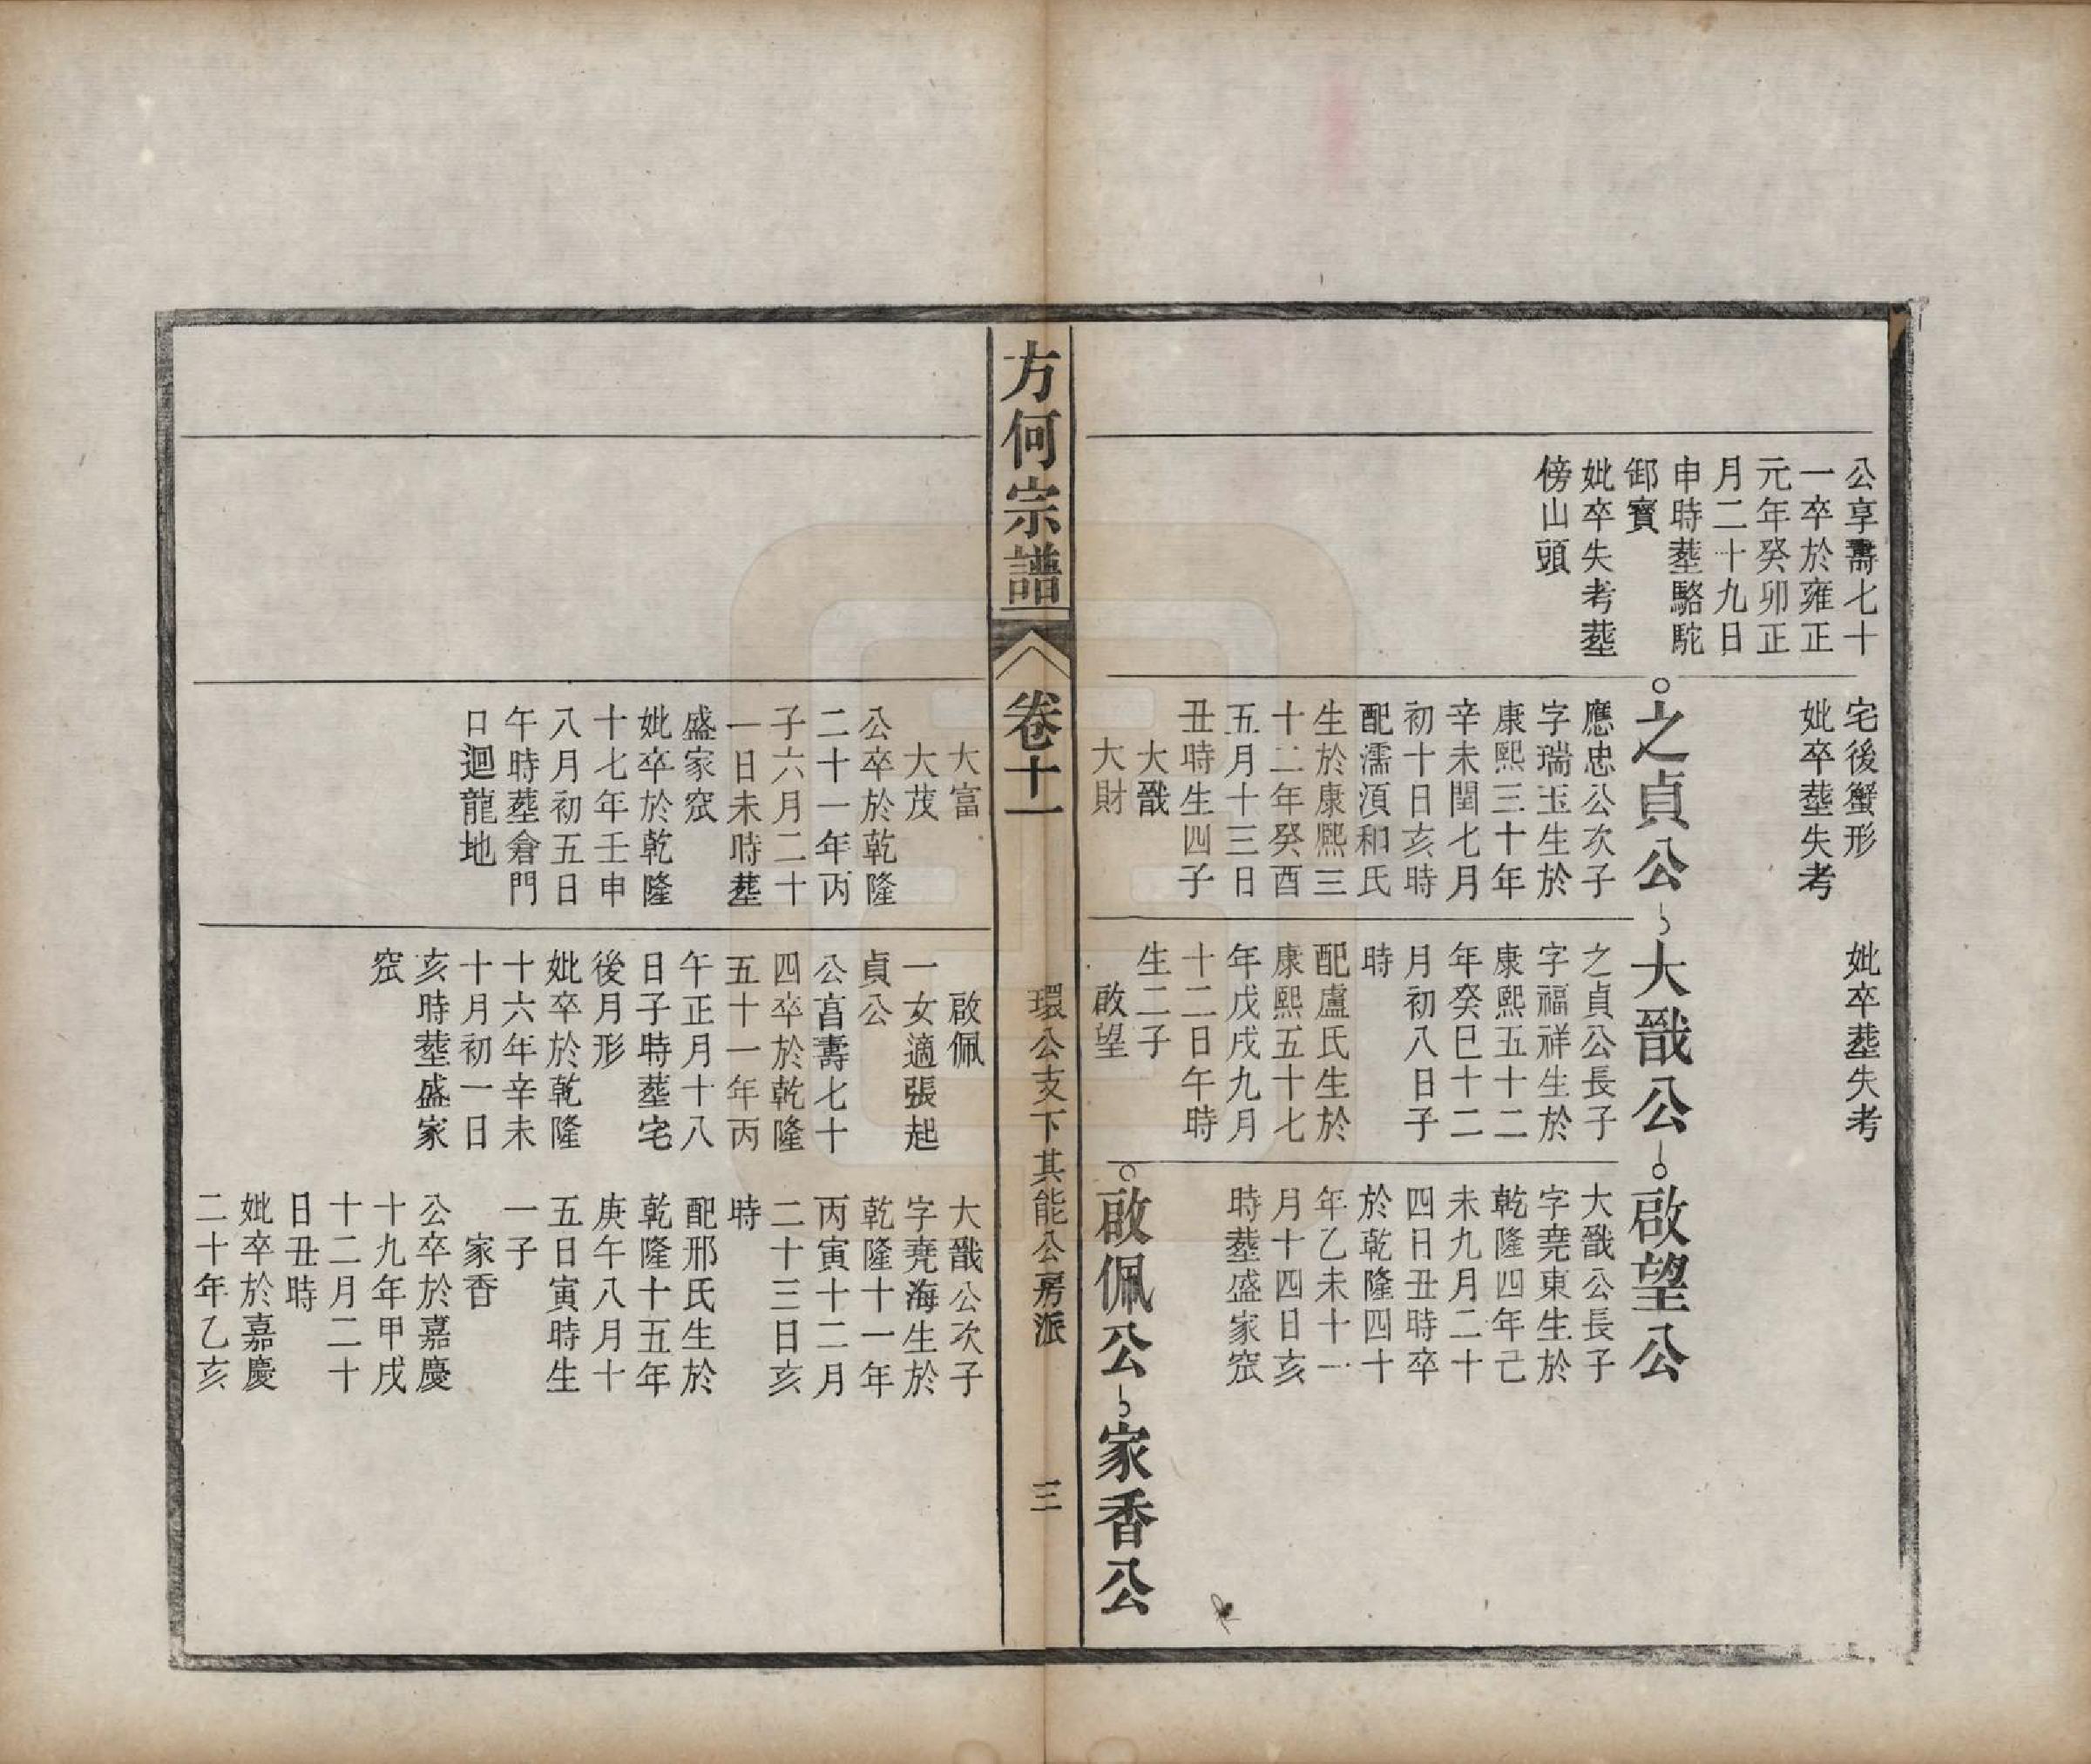 公享壽七十
一卒於雍正
元年癸卯正
月二十九日
申時塟駱駝
卸寶
妣卒失考塟
傍山頭
宅後蟹形
妣卒塟失考
妣卒塟失考
之貞公
大戬公
啟望公
應忠公次子
字瑞玉生於
康熙三十年
辛未閏七月
初十日亥時
配濡湏和氏
生於康熙三
十二年癸酉
五月十三日
丑時生四子
大戬
大財
之貞公長子
字福祥生於
康熙五十二
年癸巳十二
月初八日子
時
配盧氏生於
康熙五十七
年戊戌九月
十二日午時
生二子
啟望
大戬公長子
字堯東生於
乾隆四年己
未九月二十
四日丑時卒
於乾隆四十
年乙未十一
月十四日亥
時塟盛家窊
啟佩公
家香公
方何宗譜
卷十一
環公支下其能公房派
三
大富
大茂
公卒於乾隆
二十一年丙
子六月二十
一日未時塟
盛家窊
妣卒於乾隆
十七年壬申
八月初五日
午時塟倉門
口迴龍地
啟佩
一女適張起
貞公
公亯壽七十
四卒於乾隆
五十一年丙
午正月十八
日子時塟宅
後月形
妣卒於乾隆
十六年辛未
十月初一日
亥時塟盛家
窊
大戬公次子
字堯海生於
乾隆十一年
丙寅十二月
二十三日亥
時
配邢氏生於
乾隆十五年
庚午八月十
五日寅時生
一子
家香
公卒於嘉慶
十九年甲戌
十二月二十
日丑時
妣卒於嘉慶
二十年乙亥